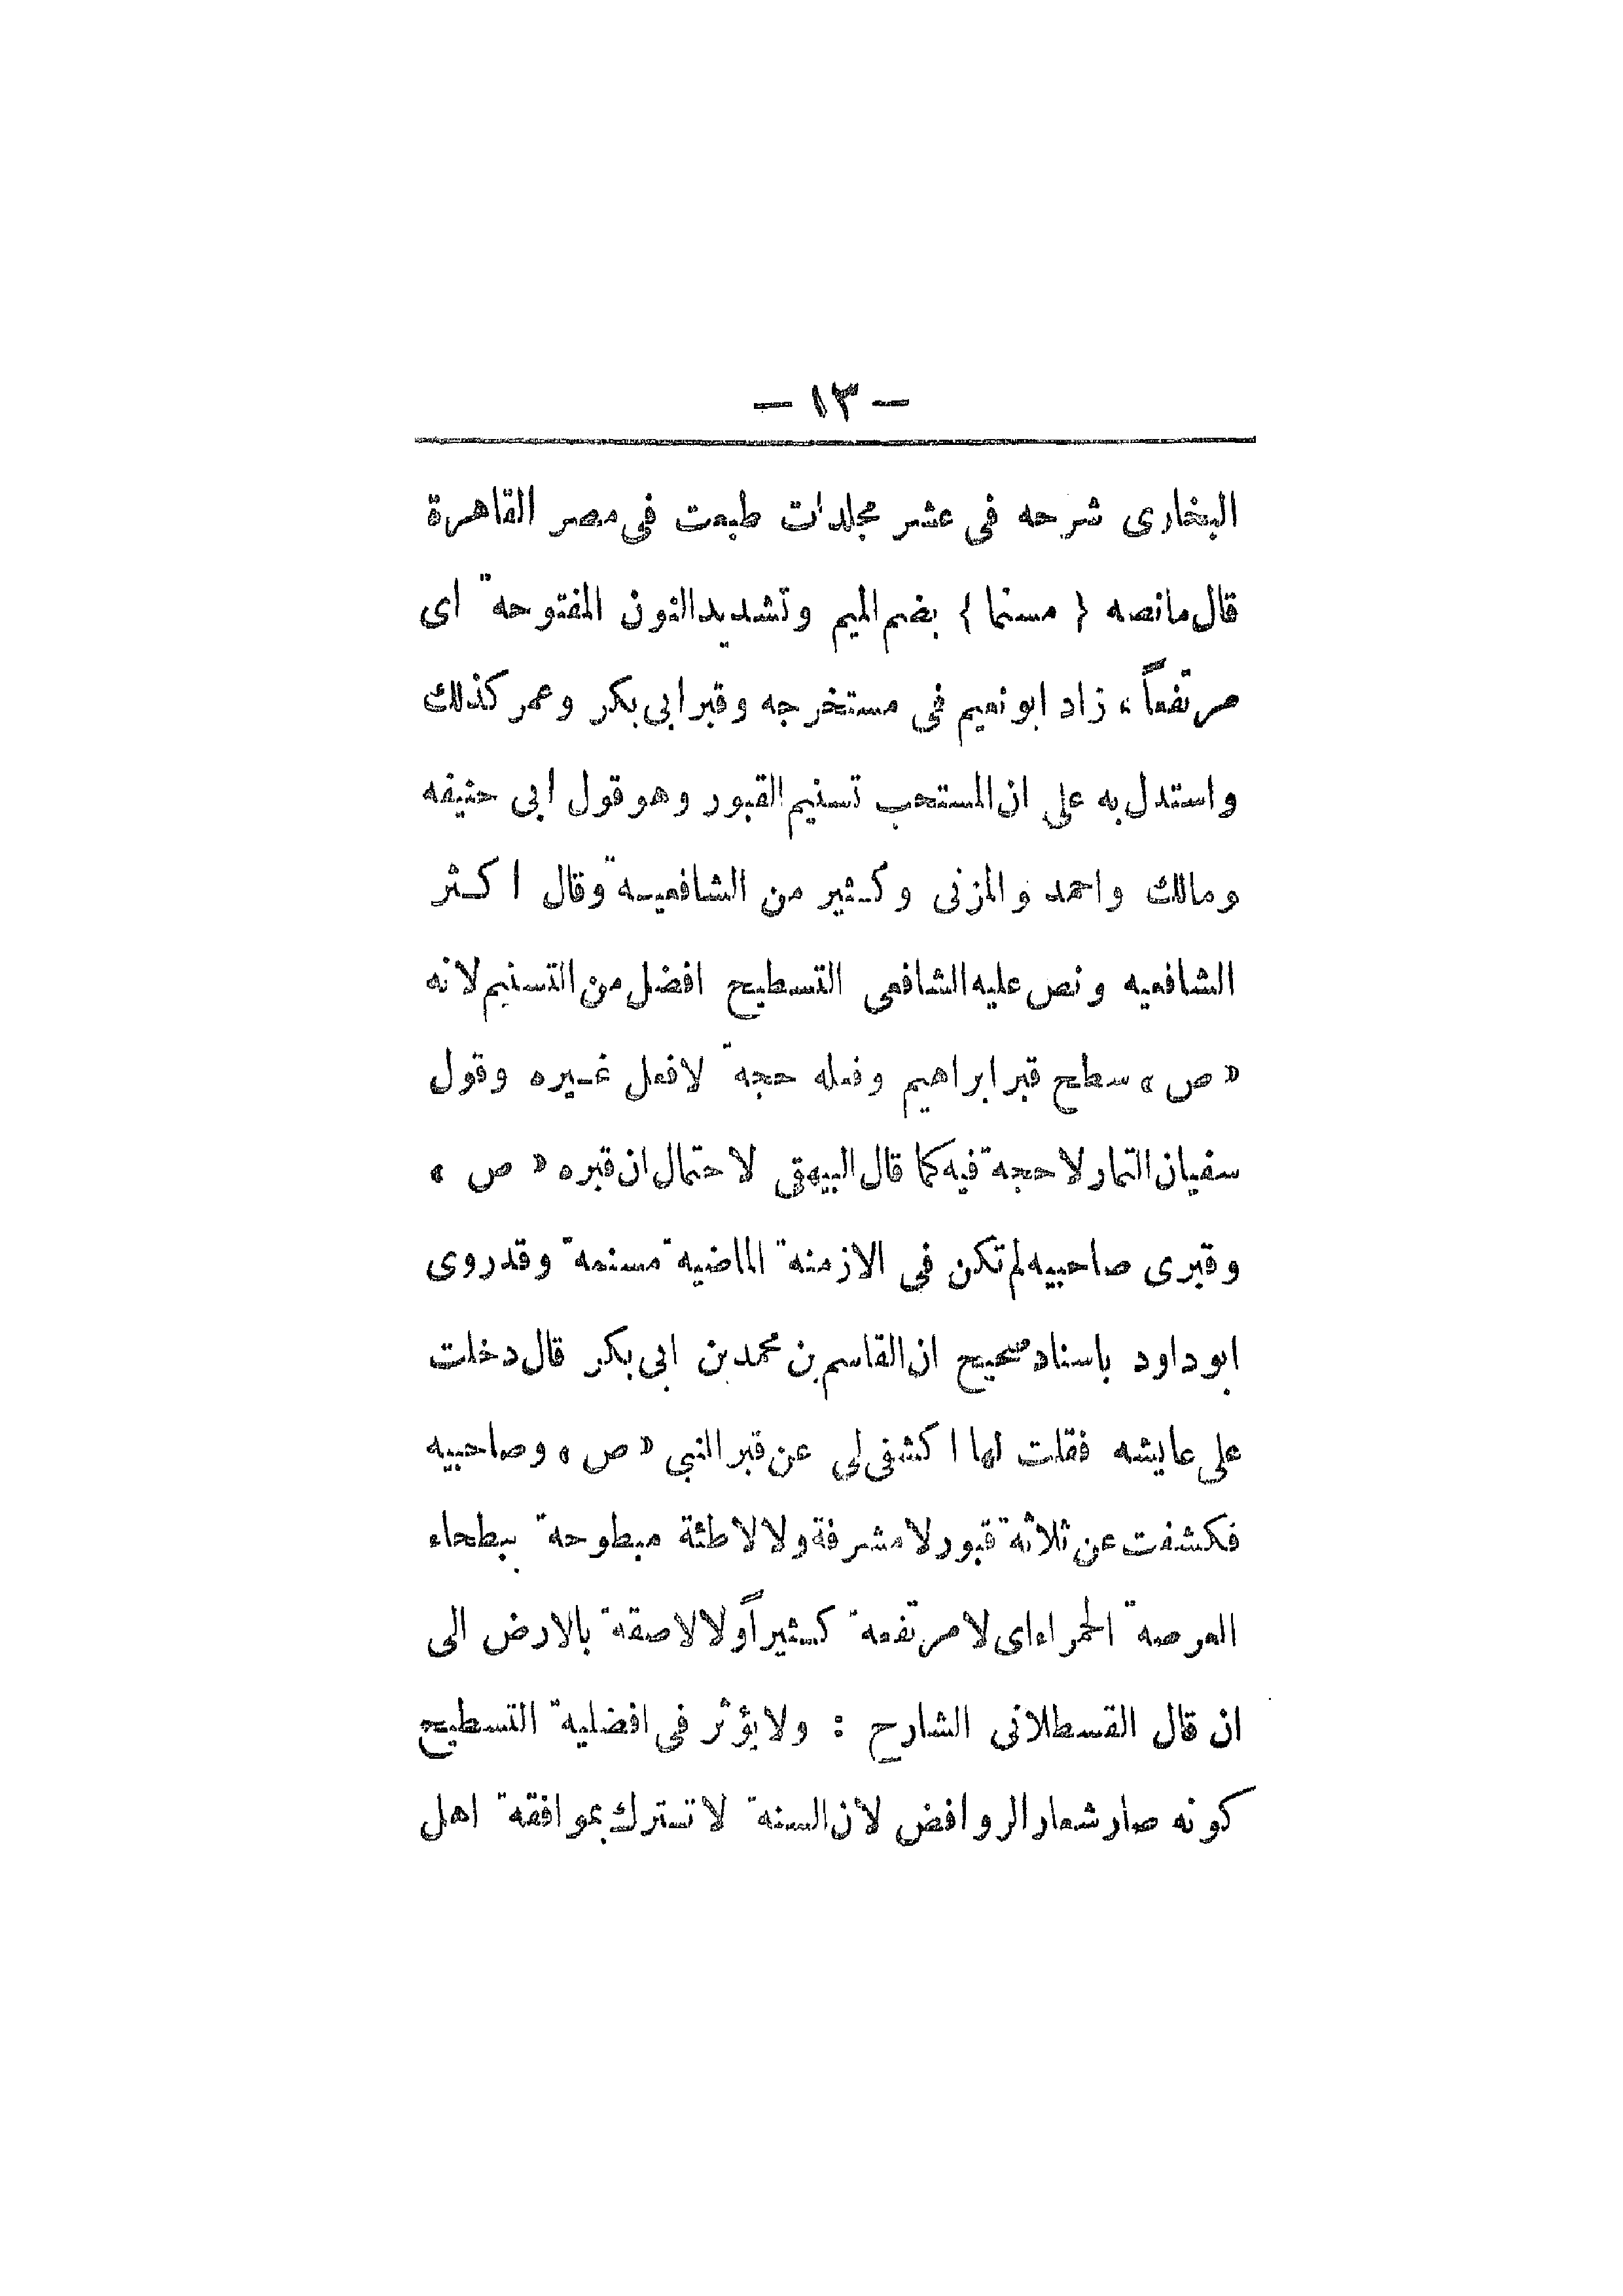 — ١٣ —
البخارى شرحه فى عشر مجلدات طبعت فى مصر القاهرة
قال مانصه { مسنما } بضم الميم وتشديد النون المفتوحة اى
مرتفعاً، زاد ابو نعيم فى مستخرجه وقبر ابى بكر وعمر كذلك
واستدل به على ان المستحب تسنيم القبور وهو قول ابى حنيفه
ومالك واحمد والمزنى وكثير من الشافعية وقال اكثر
الشافعيه ونص عليه الشافعى التسطيح افضل من التسنيم لانه
« ص » سطح قبر ابراهيم وفعله حجة لافعل غيره وقول
سفيان التمار لا حجة فيه كما قال البيهقى لاحتمال ان قبره « ص »
وقبرى صاحبيه لم تكن فى الازمنة الماضية مسنمة وقد روى
ابو داود باسناد صحيح ان القاسم بن محمد بن ابى بكر قال دخلت
على عايشه فقلت لها اكشفى لى عن قبر النبى « ص » وصاحبيه
فكشفت عن ثلاثة قبور لا مشرفة ولا لاطئة مبطوحة ببطحاء
العرصة الحمراء اى لا مرتفعة كثيراً ولا لاصقة بالارض الى
ان قال القسطلانى الشارح : ولا يؤثر فى افضلية التسطيح
كونه صار شعار الروافض لان السنة لا تترك بموافقة اهل